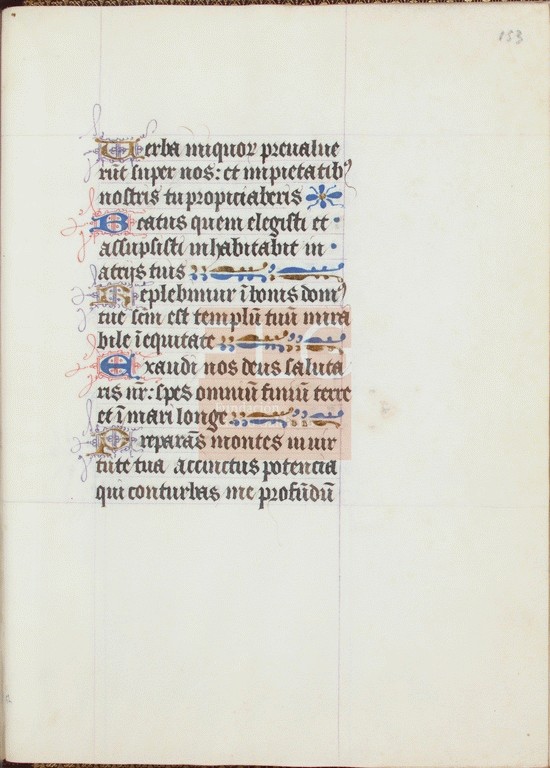 153
Verba iniquor preualue
rūt super nos: et impietatibꝰ
nostris tu propiciaberis
Beatus quem elegisti et
assupsisti inhabitabit in
atrijs tuis
Replebimur ī bonis domꝰ
tue scm̄ est templū tuū mira
bile ī equitate
Exaudi nos deus saluta
ris nr̄: spes omniū finiū terre
et ī mari longe
Preparās montes in uir
tute tua accinctus potencia
qui conturbas me profūdū